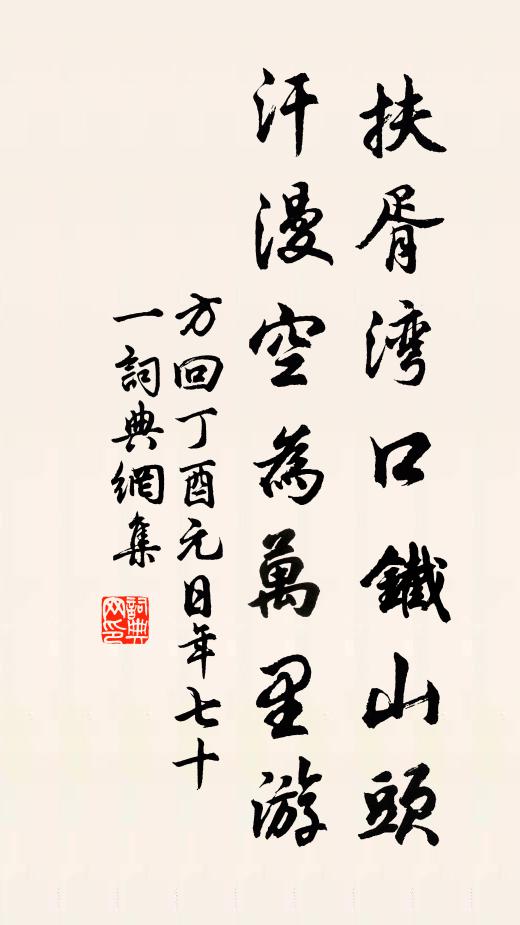 扶胥湾口鐵山頭
汗漫空為萬里游
方回丁酉元日年七十
一詞典網集
詞典网印